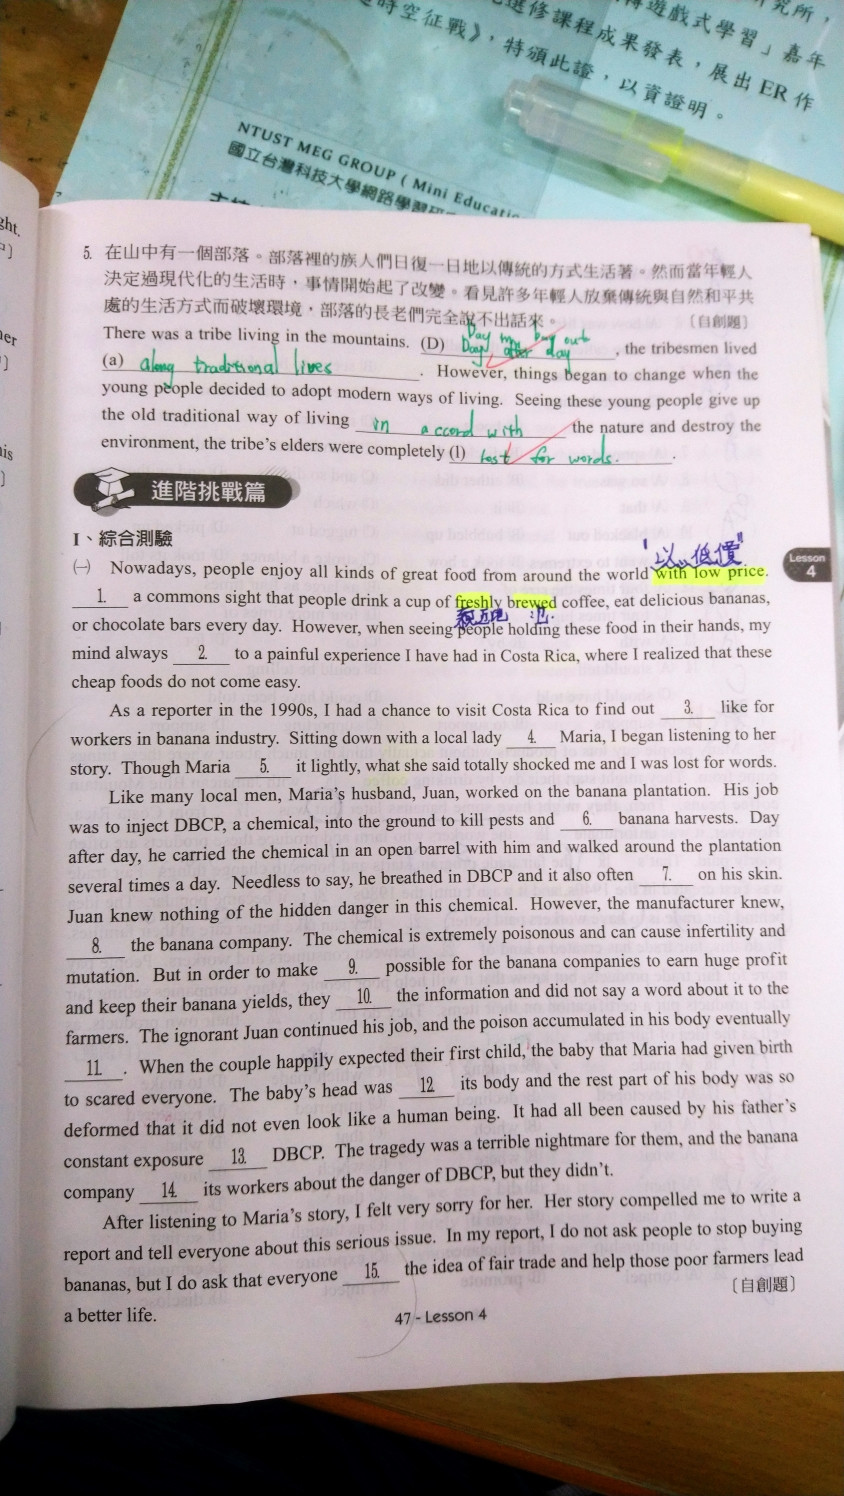 究所，
選修課程成果發表，展出 ER 作
遊戲式學習」嘉年
時空征戰》，特頒此證，以資證明。
NTUST MEG GROUP ( Mini Educatio
國立台灣科技大學網路學習研究
ght.
5. 在山中有一個部落。部落裡的族人們日復一日地以傳統的方式生活著。然而當年輕人
決定過現代化的生活時，事情開始起了改變。看見許多年輕人放棄傳統與自然和平共
處的生活方式而破壞環境，部落的長老們完全說不出話來。 〔自創題〕
Day in, day out
There was a tribe living in the mountains. (D) Day after day , the tribesmen lived
(a) along traditional lives . However, things began to change when the
young people decided to adopt modern ways of living. Seeing these young people give up
the old traditional way of living in accord with the nature and destroy the
environment, the tribe's elders were completely (l) lost for words. .
進階挑戰篇
I、綜合測驗
"以..低價"
㈠ Nowadays, people enjoy all kinds of great food from around the world with low price.
Lesson
4
1. a commons sight that people drink a cup of freshly brewed coffee, eat delicious bananas,
泡.
or chocolate bars every day. However, when seeing people holding these food in their hands, my
mind always 2. to a painful experience I have had in Costa Rica, where I realized that these
cheap foods do not come easy.
As a reporter in the 1990s, I had a chance to visit Costa Rica to find out 3. like for
workers in banana industry. Sitting down with a local lady 4. Maria, I began listening to her
story. Though Maria 5. it lightly, what she said totally shocked me and I was lost for words.
Like many local men, Maria's husband, Juan, worked on the banana plantation. His job
was to inject DBCP, a chemical, into the ground to kill pests and 6. banana harvests. Day
after day, he carried the chemical in an open barrel with him and walked around the plantation
several times a day. Needless to say, he breathed in DBCP and it also often 7. on his skin.
Juan knew nothing of the hidden danger in this chemical. However, the manufacturer knew,
8. the banana company. The chemical is extremely poisonous and can cause infertility and
mutation. But in order to make 9. possible for the banana companies to earn huge profit
and keep their banana yields, they 10. the information and did not say a word about it to the
farmers. The ignorant Juan continued his job, and the poison accumulated in his body eventually
11. . When the couple happily expected their first child, the baby that Maria had given birth
to scared everyone. The baby's head was 12 its body and the rest part of his body was so
deformed that it did not even look like a human being. It had all been caused by his father's
constant exposure 13. DBCP. The tragedy was a terrible nightmare for them, and the banana
company 14. its workers about the danger of DBCP, but they didn't.
After listening to Maria's story, I felt very sorry for her. Her story compelled me to write a
report and tell everyone about this serious issue. In my report, I do not ask people to stop buying
bananas, but I do ask that everyone 15. the idea of fair trade and help those poor farmers lead
a better life. 〔自創題〕
47 - Lesson 4